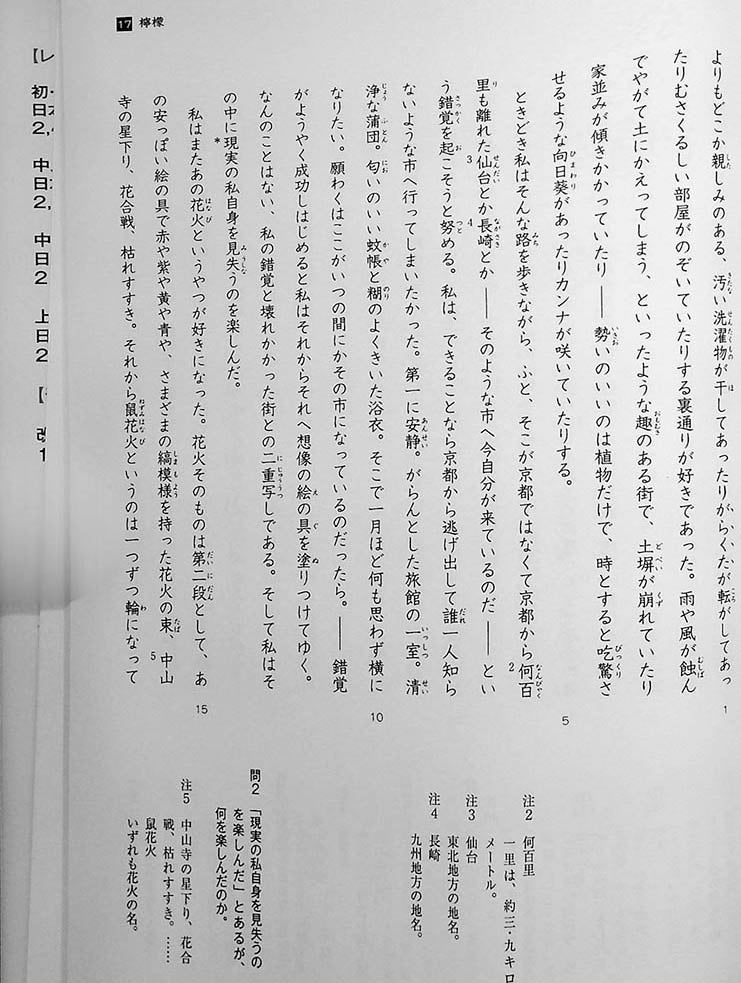 17 檸檬
よりもどこか親しみのある、汚い洗濯物が干してあったりがらくたが転がしてあっ
たりむさくるしい部屋がのぞいていたりする裏通りが好きであった。雨や風が蝕ん
でやがて土にかえってしまう、といったような趣のある街で、土塀が崩れていたり
家並みが傾きかかっていたり――勢いのいいのは植物だけで、時とすると吃驚さ
せるような向日葵があったりカンナが咲いていたりする。
ときどき私はそんな路を歩きながら、ふと、そこが京都ではなくて京都から何百
里も離れた仙台とか長崎とか――そのような市へ今自分が来ているのだ――とい
う錯覚を起こそうと努める。私は、できることなら京都から逃げ出して誰一人知ら
ないような市へ行ってしまいたかった。第一に安静。がらんとした旅館の一室。清
浄な蒲団。匂いのいい蚊帳と糊のよくきいた浴衣。そこで一月ほど何も思わず横に
なりたい。願わくはここがいつの間にかその市になっているのだったら。――錯覚
がようやく成功しはじめると私はそれからそれへ想像の絵の具を塗りつけてゆく。
なんのことはない、私の錯覚と壊れかかった街との二重写しである。そして私はそ
の中に現実の私自身を見失うのを楽しんだ。
私はまたあの花火というやつが好きになった。花火そのものは第二段として、あ
の安っぽい絵の具で赤や紫や黄や青や、さまざまの縞模様を持った花火の束、中山
寺の星下り、花合戦、枯れすすき。それから鼠花火というのは一つずつ輪になって
1
5
10
15
注2 何百里
一里は、約三・九キロ
メートル。
注3 仙台
東北地方の地名。
注4 長崎
九州地方の地名。
問2 「現実の私自身を見失うの
を楽しんだ」とあるが、
何を楽しんだのか。
注5 中山寺の星下り、花合
戦、枯れすすき。……
鼠花火
いずれも花火の名。
初日2, 中日2, 中日2 上日2